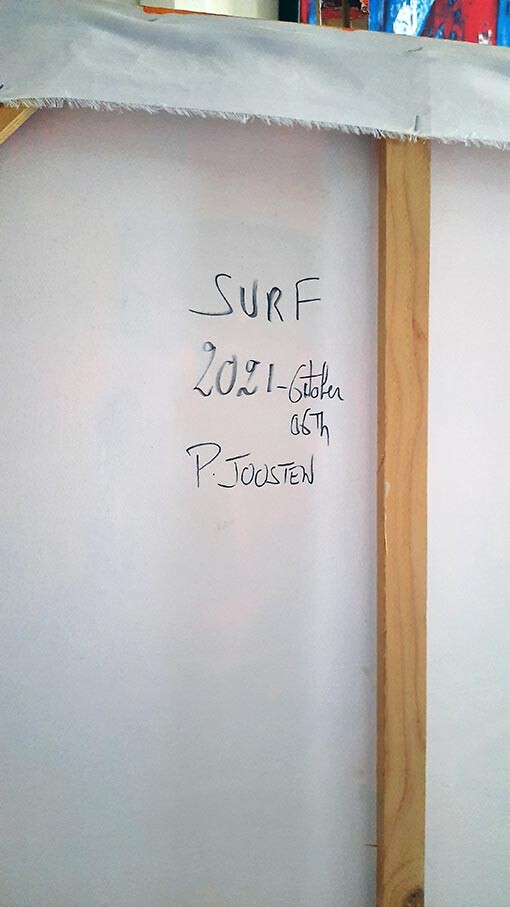 SURF
2021-October
06Th
P. JOOSTEN